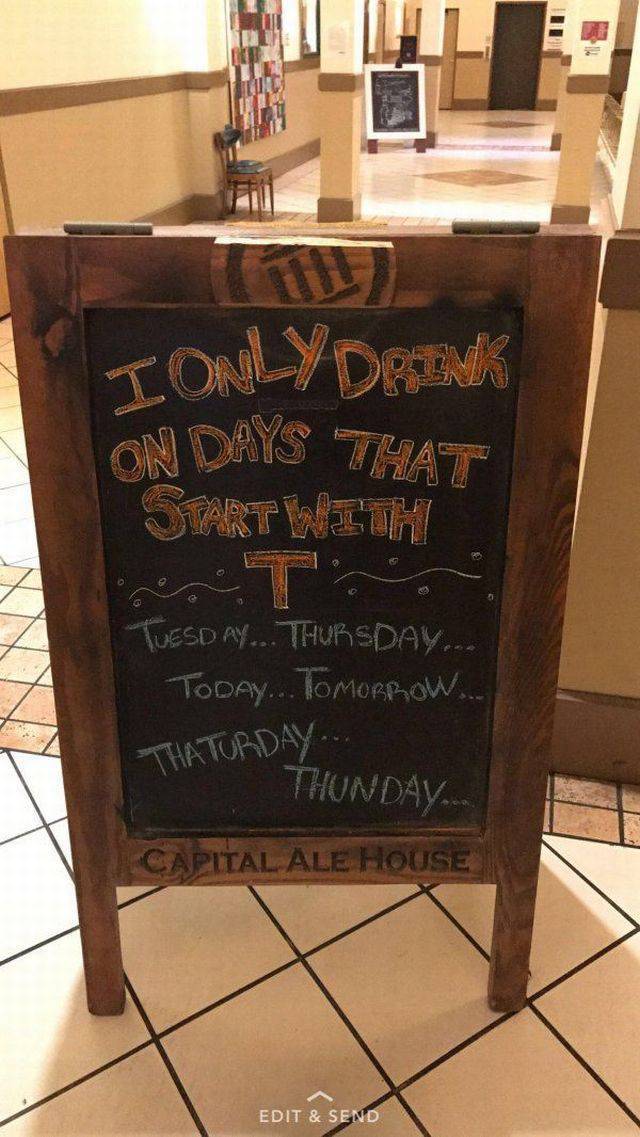 I ONLY DRINK
ON DAYS THAT
START WITH
T
TUESDAY... THURSDAY...
TODAY... TOMORROW...
THATURDAY...
THUNDAY...
CAPITAL ALE HOUSE
EDIT & SEND